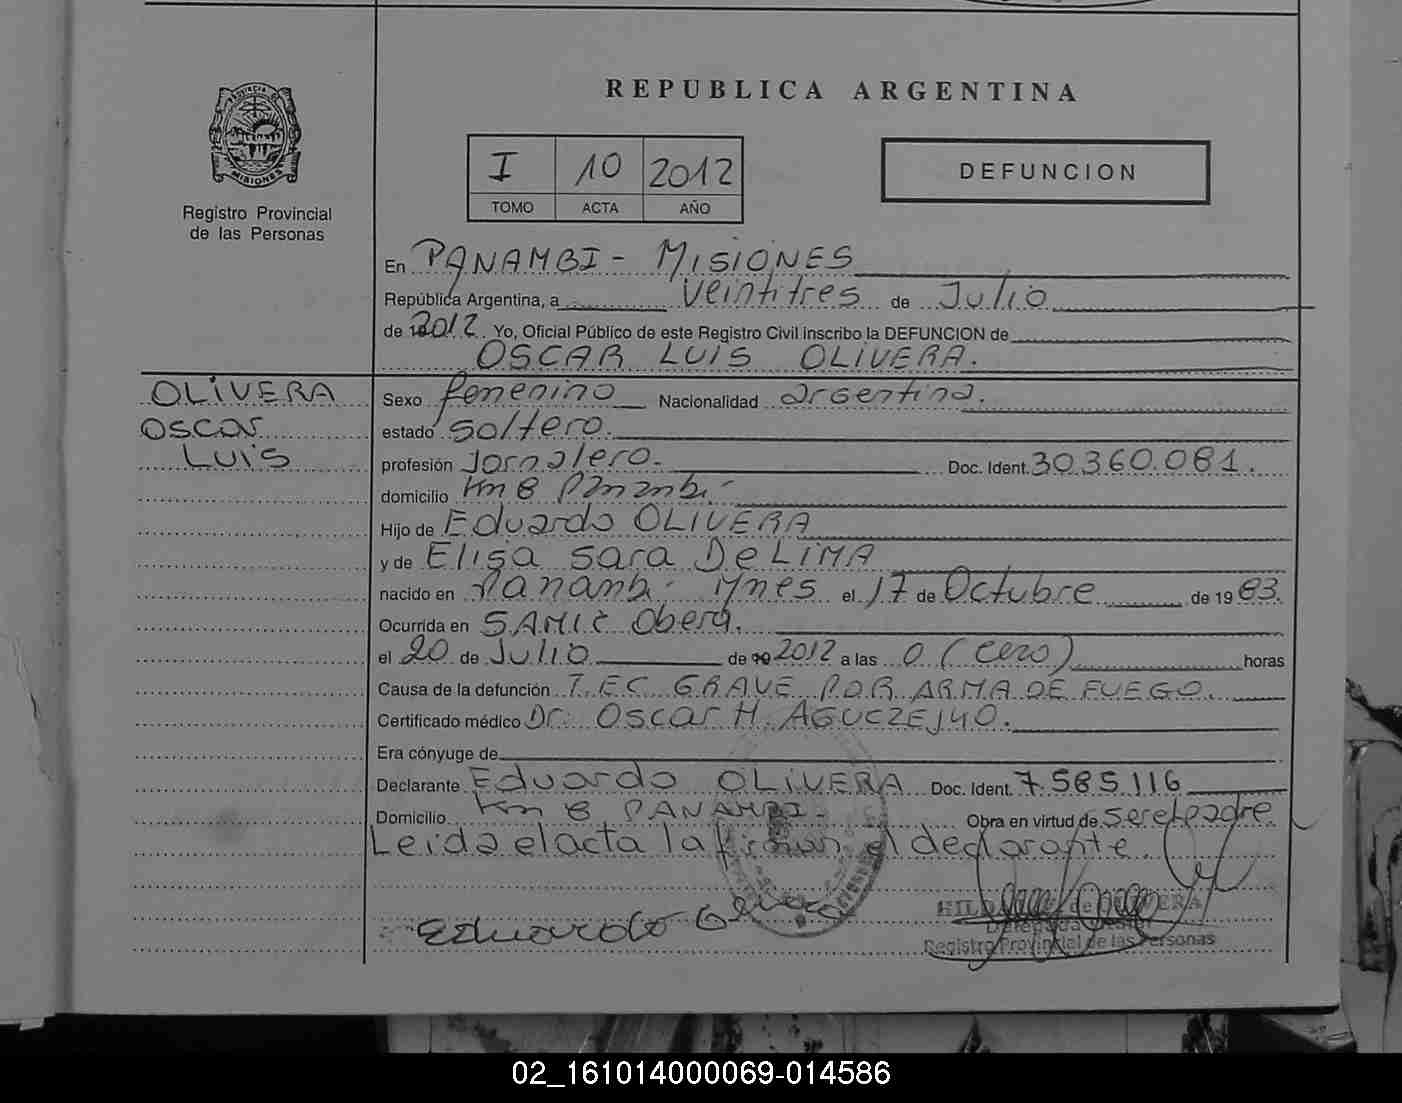 REPUBLICA ARGENTINA
PROVINCIA DE
MISIONES
Registro Provincial
de las Personas
I 10 2012
TOMO ACTA AÑO
DEFUNCION
En PANAMBI - MISIONES
República Argentina, a veintitres de Julio
de 2012 Yo, Oficial Público de este Registro Civil inscribo la DEFUNCION de
OSCAR LUIS OLIVERA.
OLIVERA
OSCAR
LUIS
Sexo femenino Nacionalidad argentina.
estado soltero.
profesión Jornalero. Doc. Ident. 30360.081.
domicilio Km 8 Panambi.-
Hijo de Eduardo OLIVERA
y de Elisa Sara De LIMA
nacido en Panambi Mnes el 17 de Octubre de 19 83.
Ocurrida en SAMIC Oberá.
el 20 de Julio de 2012 a las 0 (cero) horas
Causa de la defunción T.EC. GRAVE POR ARMA DE FUEGO.
Certificado médico Dr. Oscar H.
Era cónyuge de
Declarante Eduardo OLIVERA Doc. Ident. 7.585.116
Domicilio Km 8 PANAMBI.- Obra en virtud de ser el padre.
Leida el acta la firman el declarante.
Eduardo Olivera
de
Delegada
Registro Provincial de las Personas
02_161014000069-014586